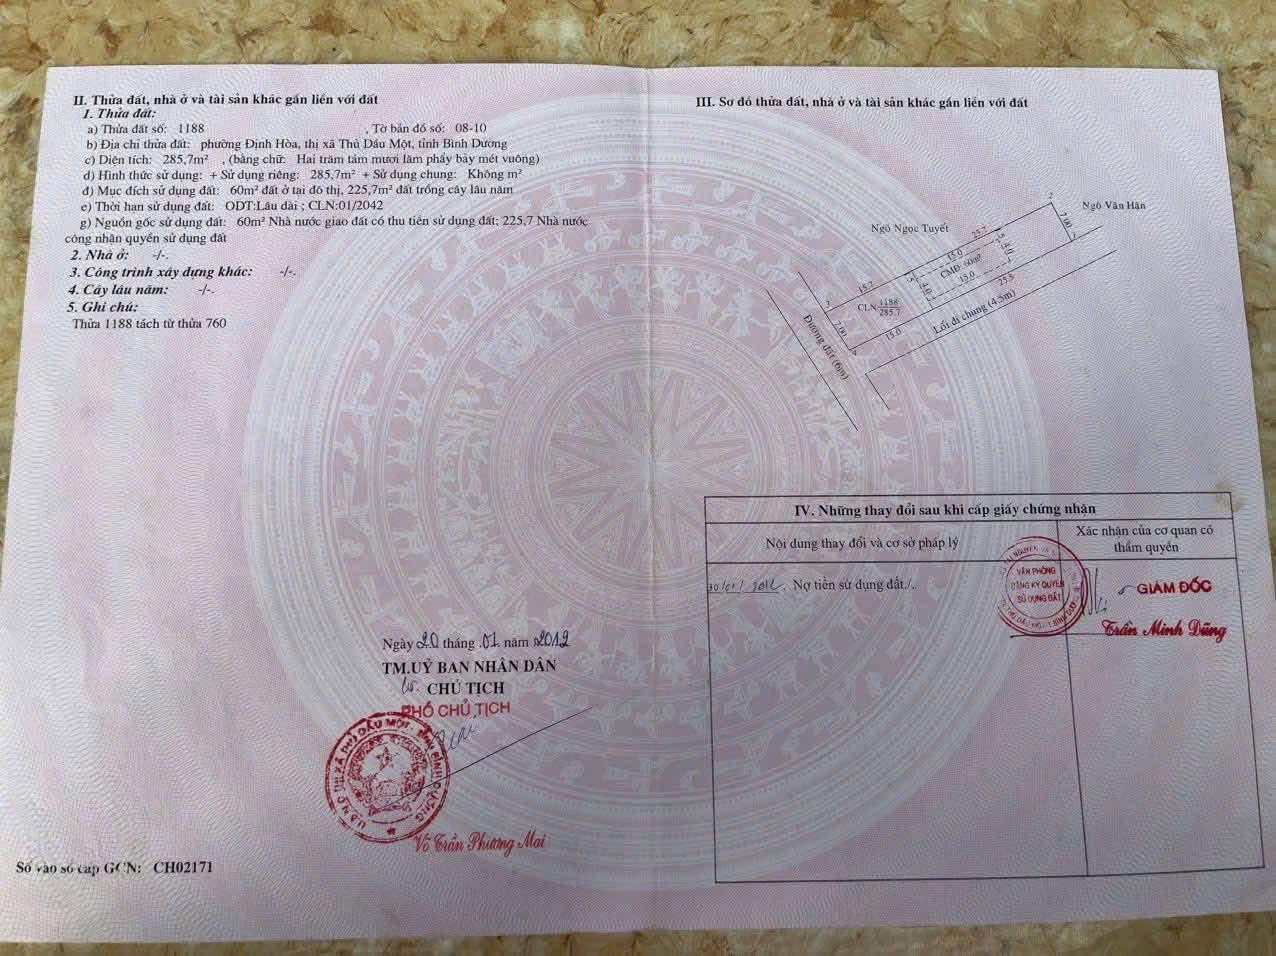 II. Thửa đất, nhà ở và tài sản khác gắn liền với đất
1. Thửa đất:
a) Thửa đất số: 1188 , Tờ bản đồ số: 08-10
b) Địa chỉ thửa đất: phường Định Hòa, thị xã Thủ Dầu Một, tỉnh Bình Dương
c) Diện tích: 285,7m² , (bằng chữ: Hai trăm tám mươi lăm phẩy bảy mét vuông)
d) Hình thức sử dụng: + Sử dụng riêng: 285,7m² + Sử dụng chung: Không m²
đ) Mục đích sử dụng đất: 60m² đất ở tại đô thị, 225,7m² đất trồng cây lâu năm
e) Thời hạn sử dụng đất: ODT:Lâu dài ; CLN:01/2042
g) Nguồn gốc sử dụng đất: 60m² Nhà nước giao đất có thu tiền sử dụng đất; 225,7 Nhà nước
công nhận quyền sử dụng đất
2. Nhà ở: -/-.
3. Công trình xây dựng khác: -/-.
4. Cây lâu năm: -/-.
5. Ghi chú:
Thửa 1188 tách từ thửa 760
Ngày 20 tháng 01 năm 2012
TM.UỶ BAN NHÂN DÂN
CHỦ TỊCH
PHÓ CHỦ TỊCH
U.B.N.D THỊ XÃ THỦ DẦU MỘT - TỈNH BÌNH DƯƠNG
Võ Trần Phương Mai
Số vào sổ cấp GCN: CH02171
III. Sơ đồ thửa đất, nhà ở và tài sản khác gắn liền với đất
Ngô Văn Hân
Ngô Ngọc Tuyết
2
7.00
1
25.7
15.0
5
4.0
CMĐ: 60m²
4.0
15.0
25.8
15.7
3
CLN 1188
285.7
7.00
4
15.0
Lối đi chung (4.5m)
Đường đất (6m)
IV. Những thay đổi sau khi cấp giấy chứng nhận
Nội dung thay đổi và cơ sở pháp lý
Xác nhận của cơ quan có
thẩm quyền
30/01/2012. Nợ tiền sử dụng đất./.
VĂN PHÒNG
ĐĂNG KÝ QUYỀN
SỬ DỤNG ĐẤT
GIÁM ĐỐC
Trần Minh Dũng